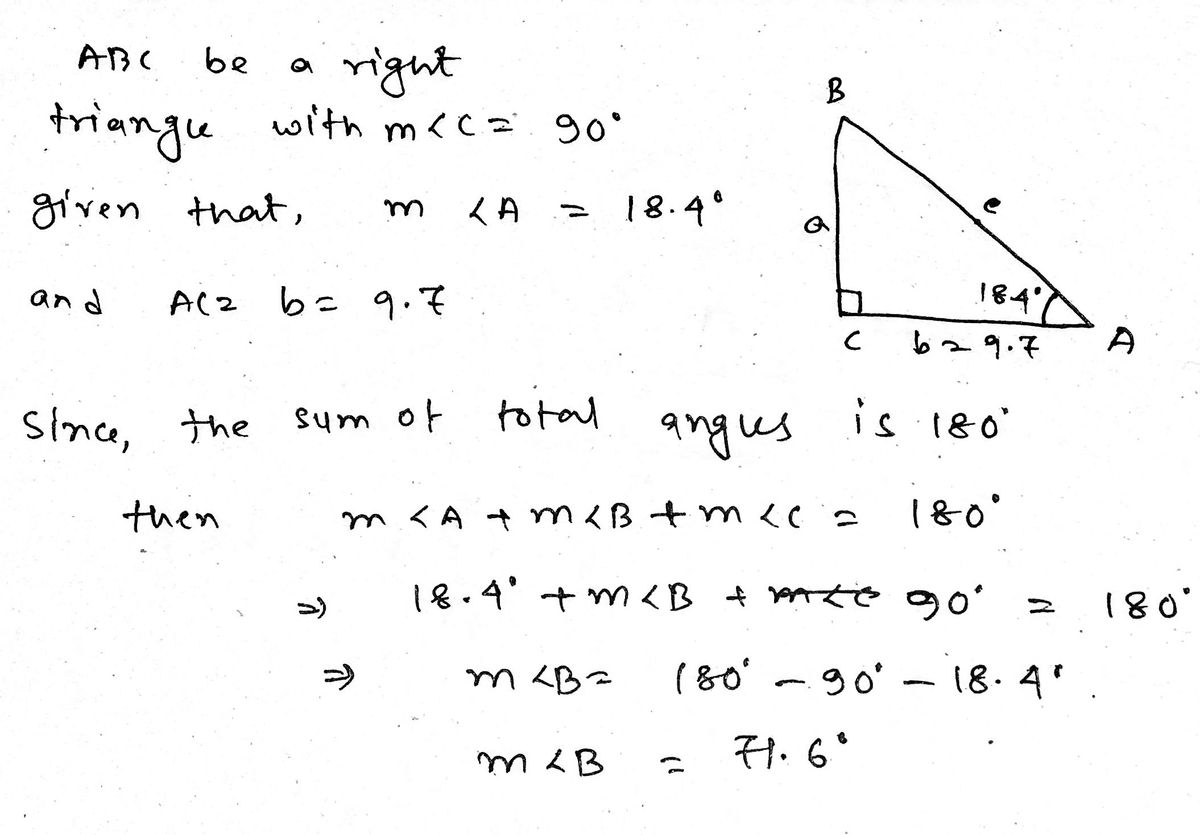 ABC be a right
triangle with m<C = 90°
given that, m <A = 18.4°
and AC = b = 9.7
B
a
c
18.4°
C b = 9.7 A
Since, the sum of total angles is 180°
then m <A + m<B + m <C = 180°
⇒ 18.4° + m<B + m<C 90° = 180°
⇒ m <B = 180° - 90° - 18.4°.
m <B = 71.6°